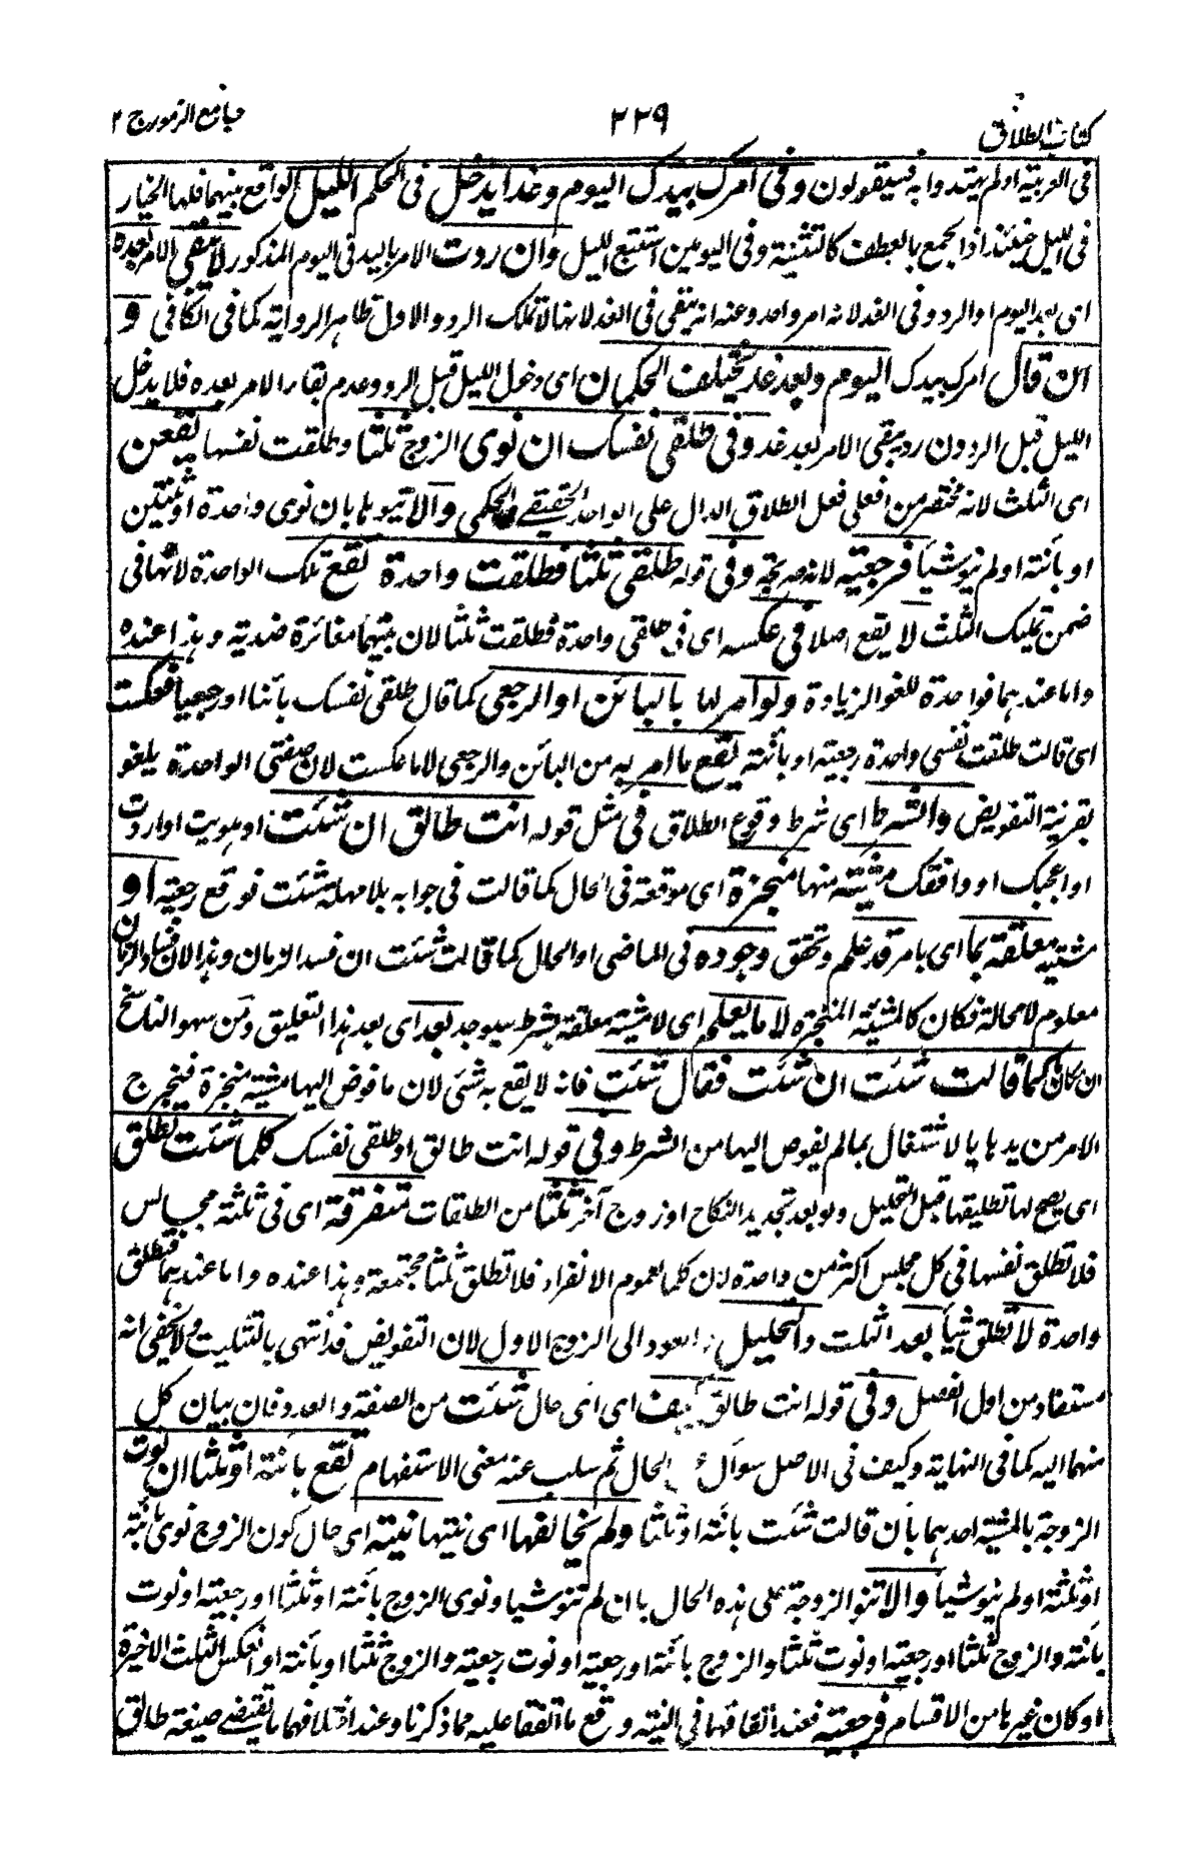 كتاب الطلاق
٢٢٩
جامع الرموز ج ٢
فى العربية او لم يهتدوا به فيقولون وفى امرك بيدك اليوم وغدا يدخل فى الحكم الليل الواقع بينهما فلها الخيار
فى الليل حينئذ اذ الجمع بالعطف كالتثنية وفى اليومين استتبع الليل وان ردت الامر باليد فى اليوم المذكور لا يبقى الامر بعده
اى بعد اليوم او الرد وفى الغد لانه امر واحد وعنه انه يبقى فى الغد لانها لا تملك الرد والاول ظاهر الرواية كما فى الكافى و
ان قال امرك بيدك اليوم وبعد غد يختلف الحكمان اى دخول الليل قبل الرد وعدم بقاء الامر بعده فلا يدخل
الليل قبل الرد وان رد يبقى الامر بعد غد وفى طلقى نفسك ان نوى الزوج ثلثا وطلقت نفسها يقعن
اى الثلث لانه مختصر من افعلى فعل الطلاق الدال على الواحد الحقيقے والحكمى والا ينوها بان نوى واحدة او ثنتين
او بائنة او لم ينو شيأ فرجعية لانه صريح وفى قوله طلقى ثلثا فطلقت واحدة تقع تلك الواحدة لانها فى
ضمن تمليك الثلث لا يقع اصلا فى عكسه اى فى طلقى واحدة فطلقت ثلثا لان بينهما مغائرة ضدية وهذا عنده
واما عندهما فواحدة للغو الزيادة ولو امرها بالبائن او الرجعى كما قال طلقى نفسك بائنا او رجعيا فعكست
اى قالت طلقت نفسى واحدة رجعية او بائنة يقع ما امر به من البائن والرجعى لا ما عكست لان صفتى الواحدة يلغو
بقرينة التفويض والشرط اى شرط وقوع الطلاق فى مثل قوله انت طالق ان شئت او هويت او اردت
او اعجبك او وافقك مشية منها منجزة اى موقعة فى الحال كما قالت فى جوابه بلا مهلة شئت فوقع رجعية او
مشيه معلقة بما اى بامر قد علم وتحقق وجوده فى الماضى او الحال كما قالت شئت ان فسد الزمان وهذا لان فساد الزمان
معلوم لا محالة فكان كالمشيئة المنجزة لا ما يعلم اى لا مشية معلقة بشرط سيوجد بعد اى بعد هذا التعليق ومن سهو الناسخ
ان كان كما قالت شئت ان شئت فقال شئت فانه لا يقع به شئ لان ما فوض اليها مشية منجزة فيخرج
الامر من يدها بالاشتغال بما لم يفوض اليها من الشرط وفى قوله انت طالق او طلقى نفسك كلما شئت تطلق
اى يصح لها تطليقها قبل التحليل ولو بعد تجديد النكاح او زوج آخر ثلثا من الطلقات متفرقة اى فى ثلثة مجالس
فلا تطلق نفسها فى كل مجلس اكثر من واحدة لان كلما لعموم الانفراد فلا تطلق ثلثا مجتمعة وهذا عنده واما عندهما فتطلق
واحدة لا تطلق شيأ بعد الثلث والتحليل العود الى الزوج الاول لان التفويض قد انتهى بالتثليث ولا يخفى انه
مستفاد من اول الفصل وفى قوله انت طالق كيف اى اى حال شئت من الصفة والعدد فان بيان كل
منهما اليه كما فى النهاية وكيف فى الاصل سوال الحال ثم سلب عنه معنى الاستفهام تقع بائنة او ثلثا ان نوت
الزوجة بالمشية احدهما بان قالت شئت بائنة او ثلثا ولم يخالفها اى نيتها نيته اى حال كون الزوج نوى بائنة
او ثلثة او لم ينو شيأ والا تنو الزوجة على هذه الحال بان لم تنو شيا ونوى الزوج بائنة او ثلثا او رجعية او نوت
بائنة والزوج ثلثا او رجعية او نوت ثلثا والزوج بائنة او رجعية او نوت رجعية والزوج ثلثا او بائنة او انعكس الثلث الاخيرة
او كان غيرها من الاقسام فرجعية فعند اتفاقهما فى النية وقع ما اتفقا عليه مما ذكرنا وعند اختلافهما ما يقتضے صيغة طالق